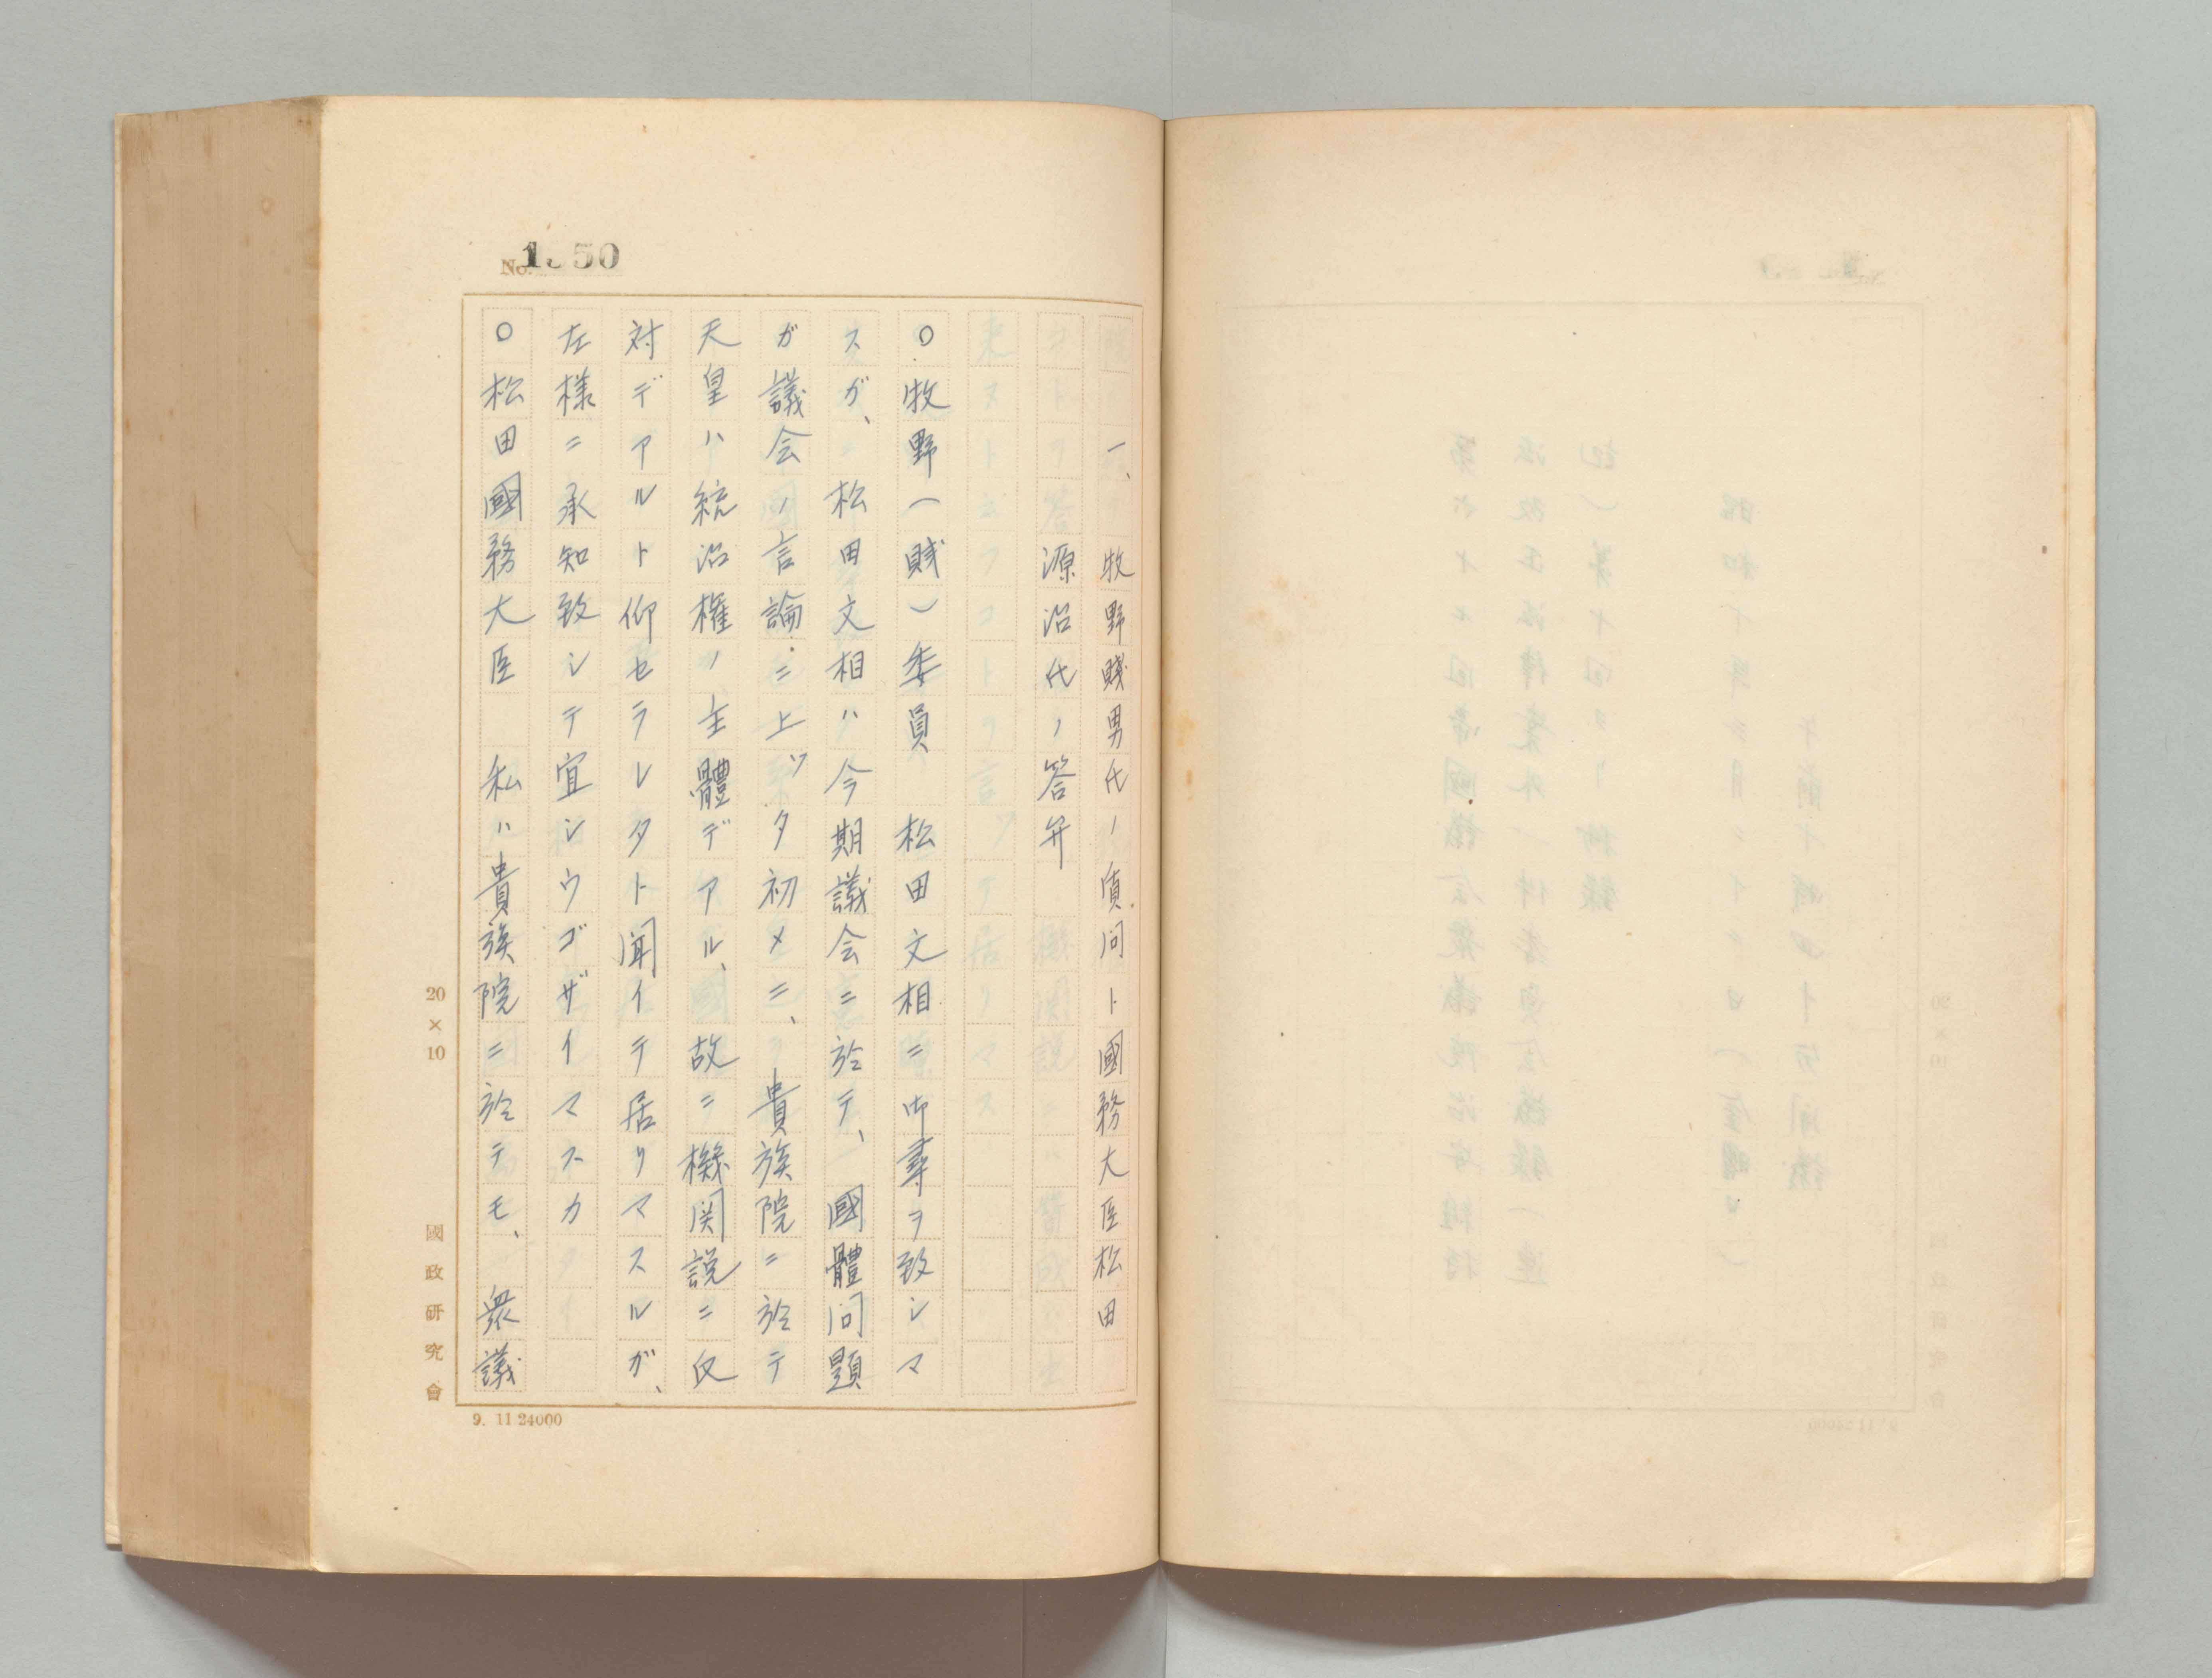 一、牧野賤男氏ノ質問ト國務大臣松田
源治氏ノ答弁
○牧野(賤)委員　松田文相ニ御尋ヲ致シマ
スガ、松田文相ハ今期議会ニ於テ、國體問題
ガ議会ノ言論ニ上ツタ初メニ、貴族院ニ於テ
天皇ハ統治權ノ主體デアル、故ニ機関説ニ反
対デアルト仰セラレタト聞イテ居リマスルガ、
左様ニ承知致シテ宜シウゴザイマスカ
○松田國務大臣　私ハ貴族院ニ於テモ、衆議
20×10
國政研究會
9. 11 24000